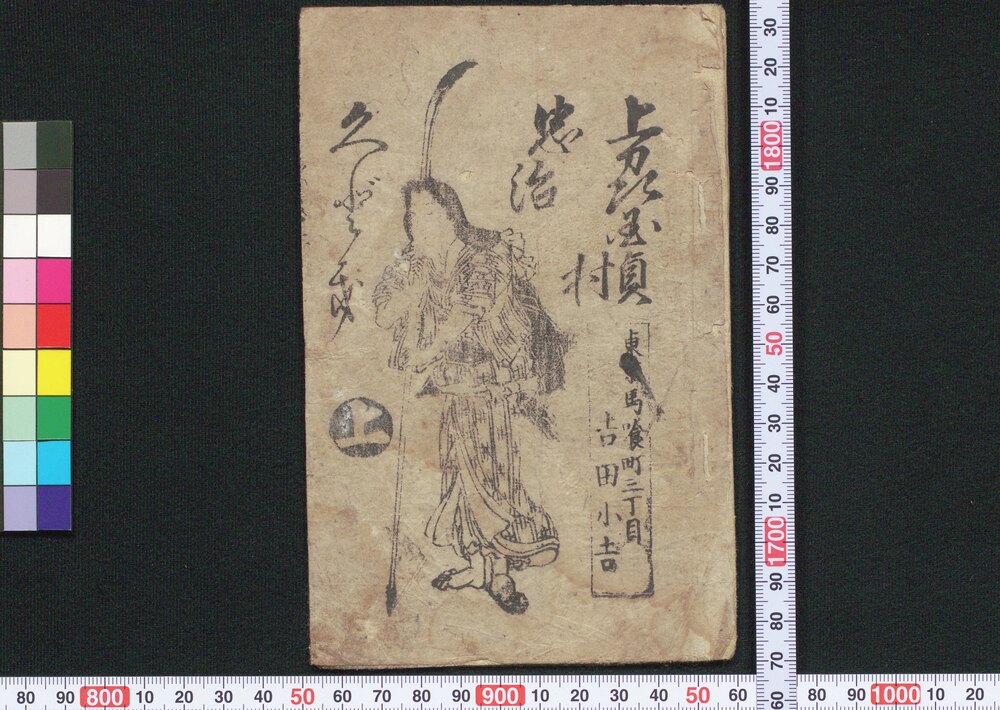 上刕国貞
村
忠治
東
馬喰町三丁目
吉田小吉
久
上
30
20
10
1800
90
80
70
60
50
40
30
20
10
1700
90
80
70
60
80 90 800 10 20 30 40 50 60 70 80 90 900 10 20 30 40 50 60 80 90 1000 10 20